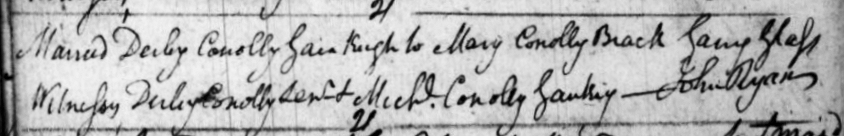 21
Married Derby Conolly Gain Kugh to Mary Conolly Brack Garry Glass
Witness Derby Conolly Senr & Michl. Conolly Gaukig — John Ryan
21